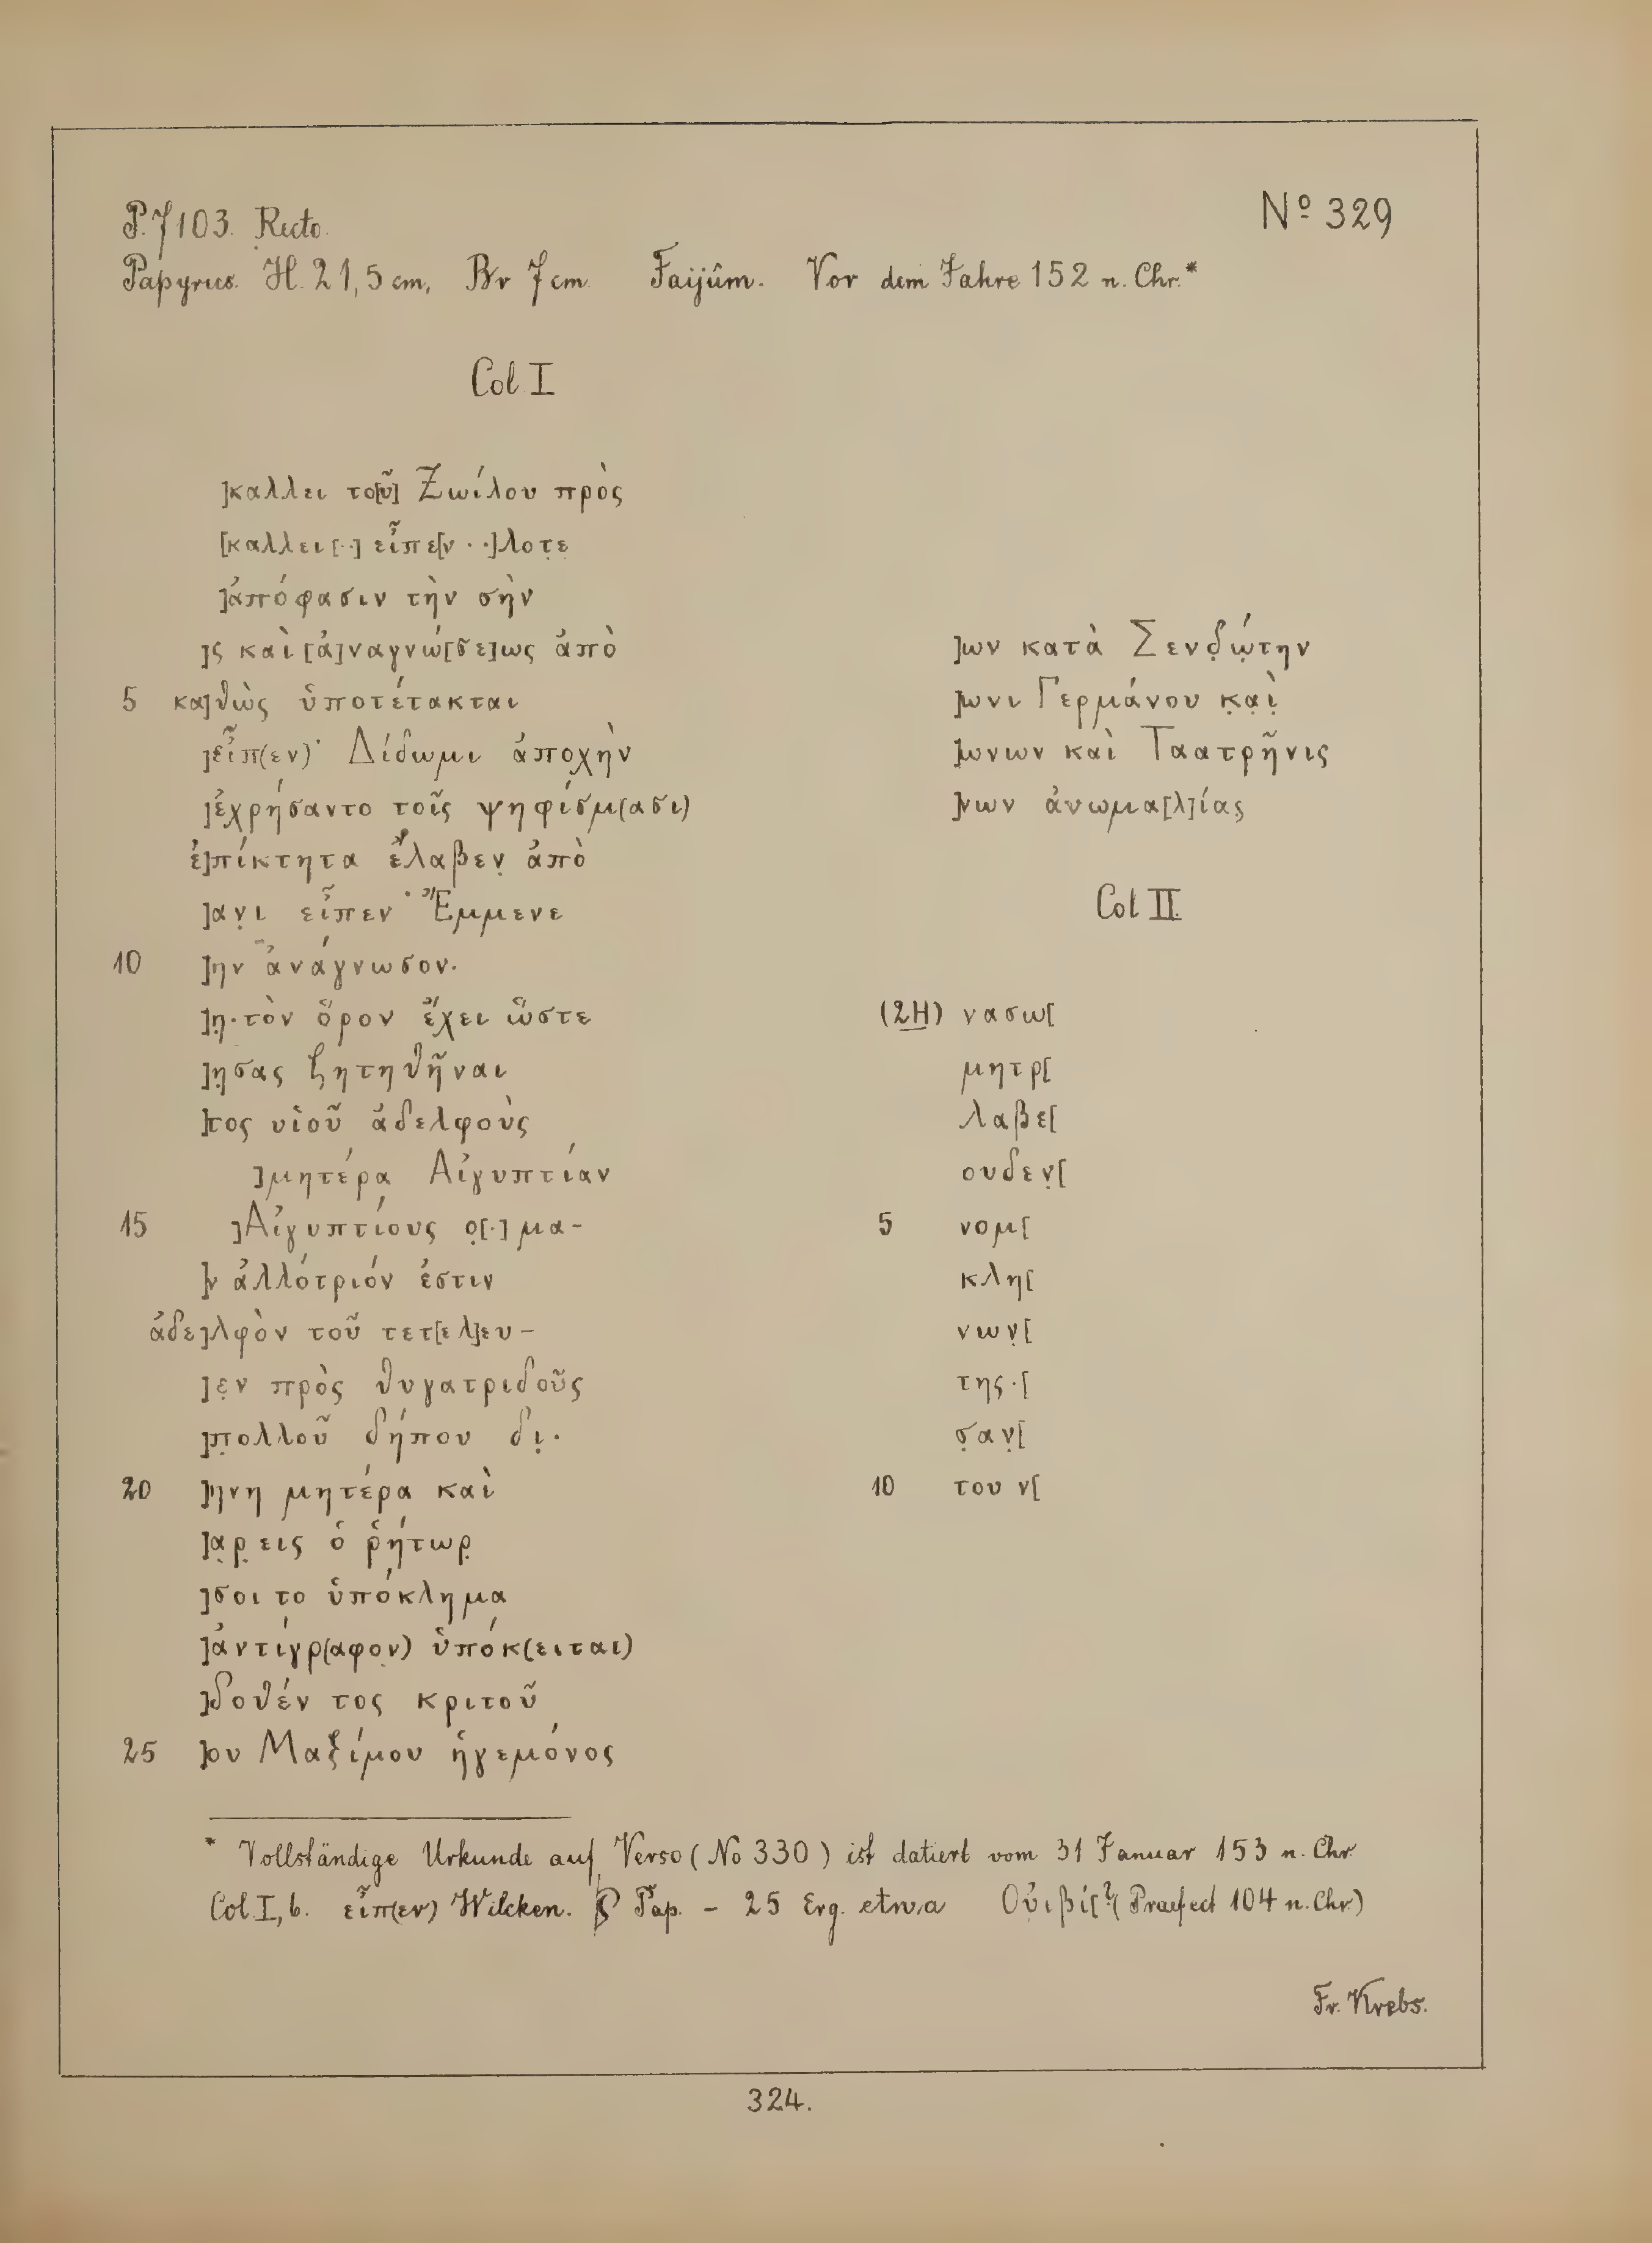 P. 7103. Recto.
Nº 329
Papyrus. H. 21,5 cm, Br 7 cm. Faijûm. Vor dem Jahre 152 n. Chr.*
Col. I
]καλλει το[ῦ] Ζωίλου πρὸς
[καλλει[··] εἶπε[ν··]λοτε
]ἀπόφασιν τὴν σὴν
]ς καὶ [ἀ]ναγνώ[σε]ως ἀπὸ
5 κα]θὼς ὑποτέτακται
]εἶπ(εν)· Δίδωμι ἀποχὴν
]ἐχρήσαντο τοῖς ψηφίσμ(ασι)
ἐ]πίκτητα ἔλαβεν̣ ἀπὸ
]αν̣ι εἶπεν· Ἔμμενε
10 ]ην ἀνάγνωσον.
]η̣·τὸν ὅρον ἔχει ὥστε
]η̣σας ζητηθῆναι
]τος υἱοῦ ἀδελφοὺς
]μητέρα Αἰγυπτίαν
15 ]Αἰγυπτίους ο̣[·]μα-
]ν ἀλλότριόν ἐστιν
ἀδε]λφὸν τοῦ τετ[ελ]ευ-
]ε̣ν πρὸς θυγατριδοῦς
]π̣ολλοῦ δήπου δι̣·
20 ]ηνη μητέρα καὶ
]α̣ρ̣εις ὁ ῥήτωρ̣
]σοι το ὑπόκλημα
]ἀντίγρ(αφον) ὑπόκ(ειται)
]δοθέντος κριτοῦ
25 ]ου Μαξίμου ἡγεμόνος
]ων κατὰ Σενδ̣ώ̣την
]ωνι Γερμάνου κ̣α̣ὶ̣
]ωνιων καὶ Τααтρῆνις
]νων ἀνωμα[λ]ίας̣
Col II.
(2H) νασω[
μητρ[
λαβε[
ουδεν̣[
5 νομ[
κλη[
νων̣[
της·[
σ̣αν̣[
10 του ν[
* Vollständige Urkunde auf Verso (No 330) ist datiert vom 31 Januar 153 n. Chr
Col. I, 6. εἶπ(εν) Wilcken. Pap. – 25 Erg. etwa Οὐιβί[?(Praefect 104 n. Chr.)
Fr. Krebs.
324.